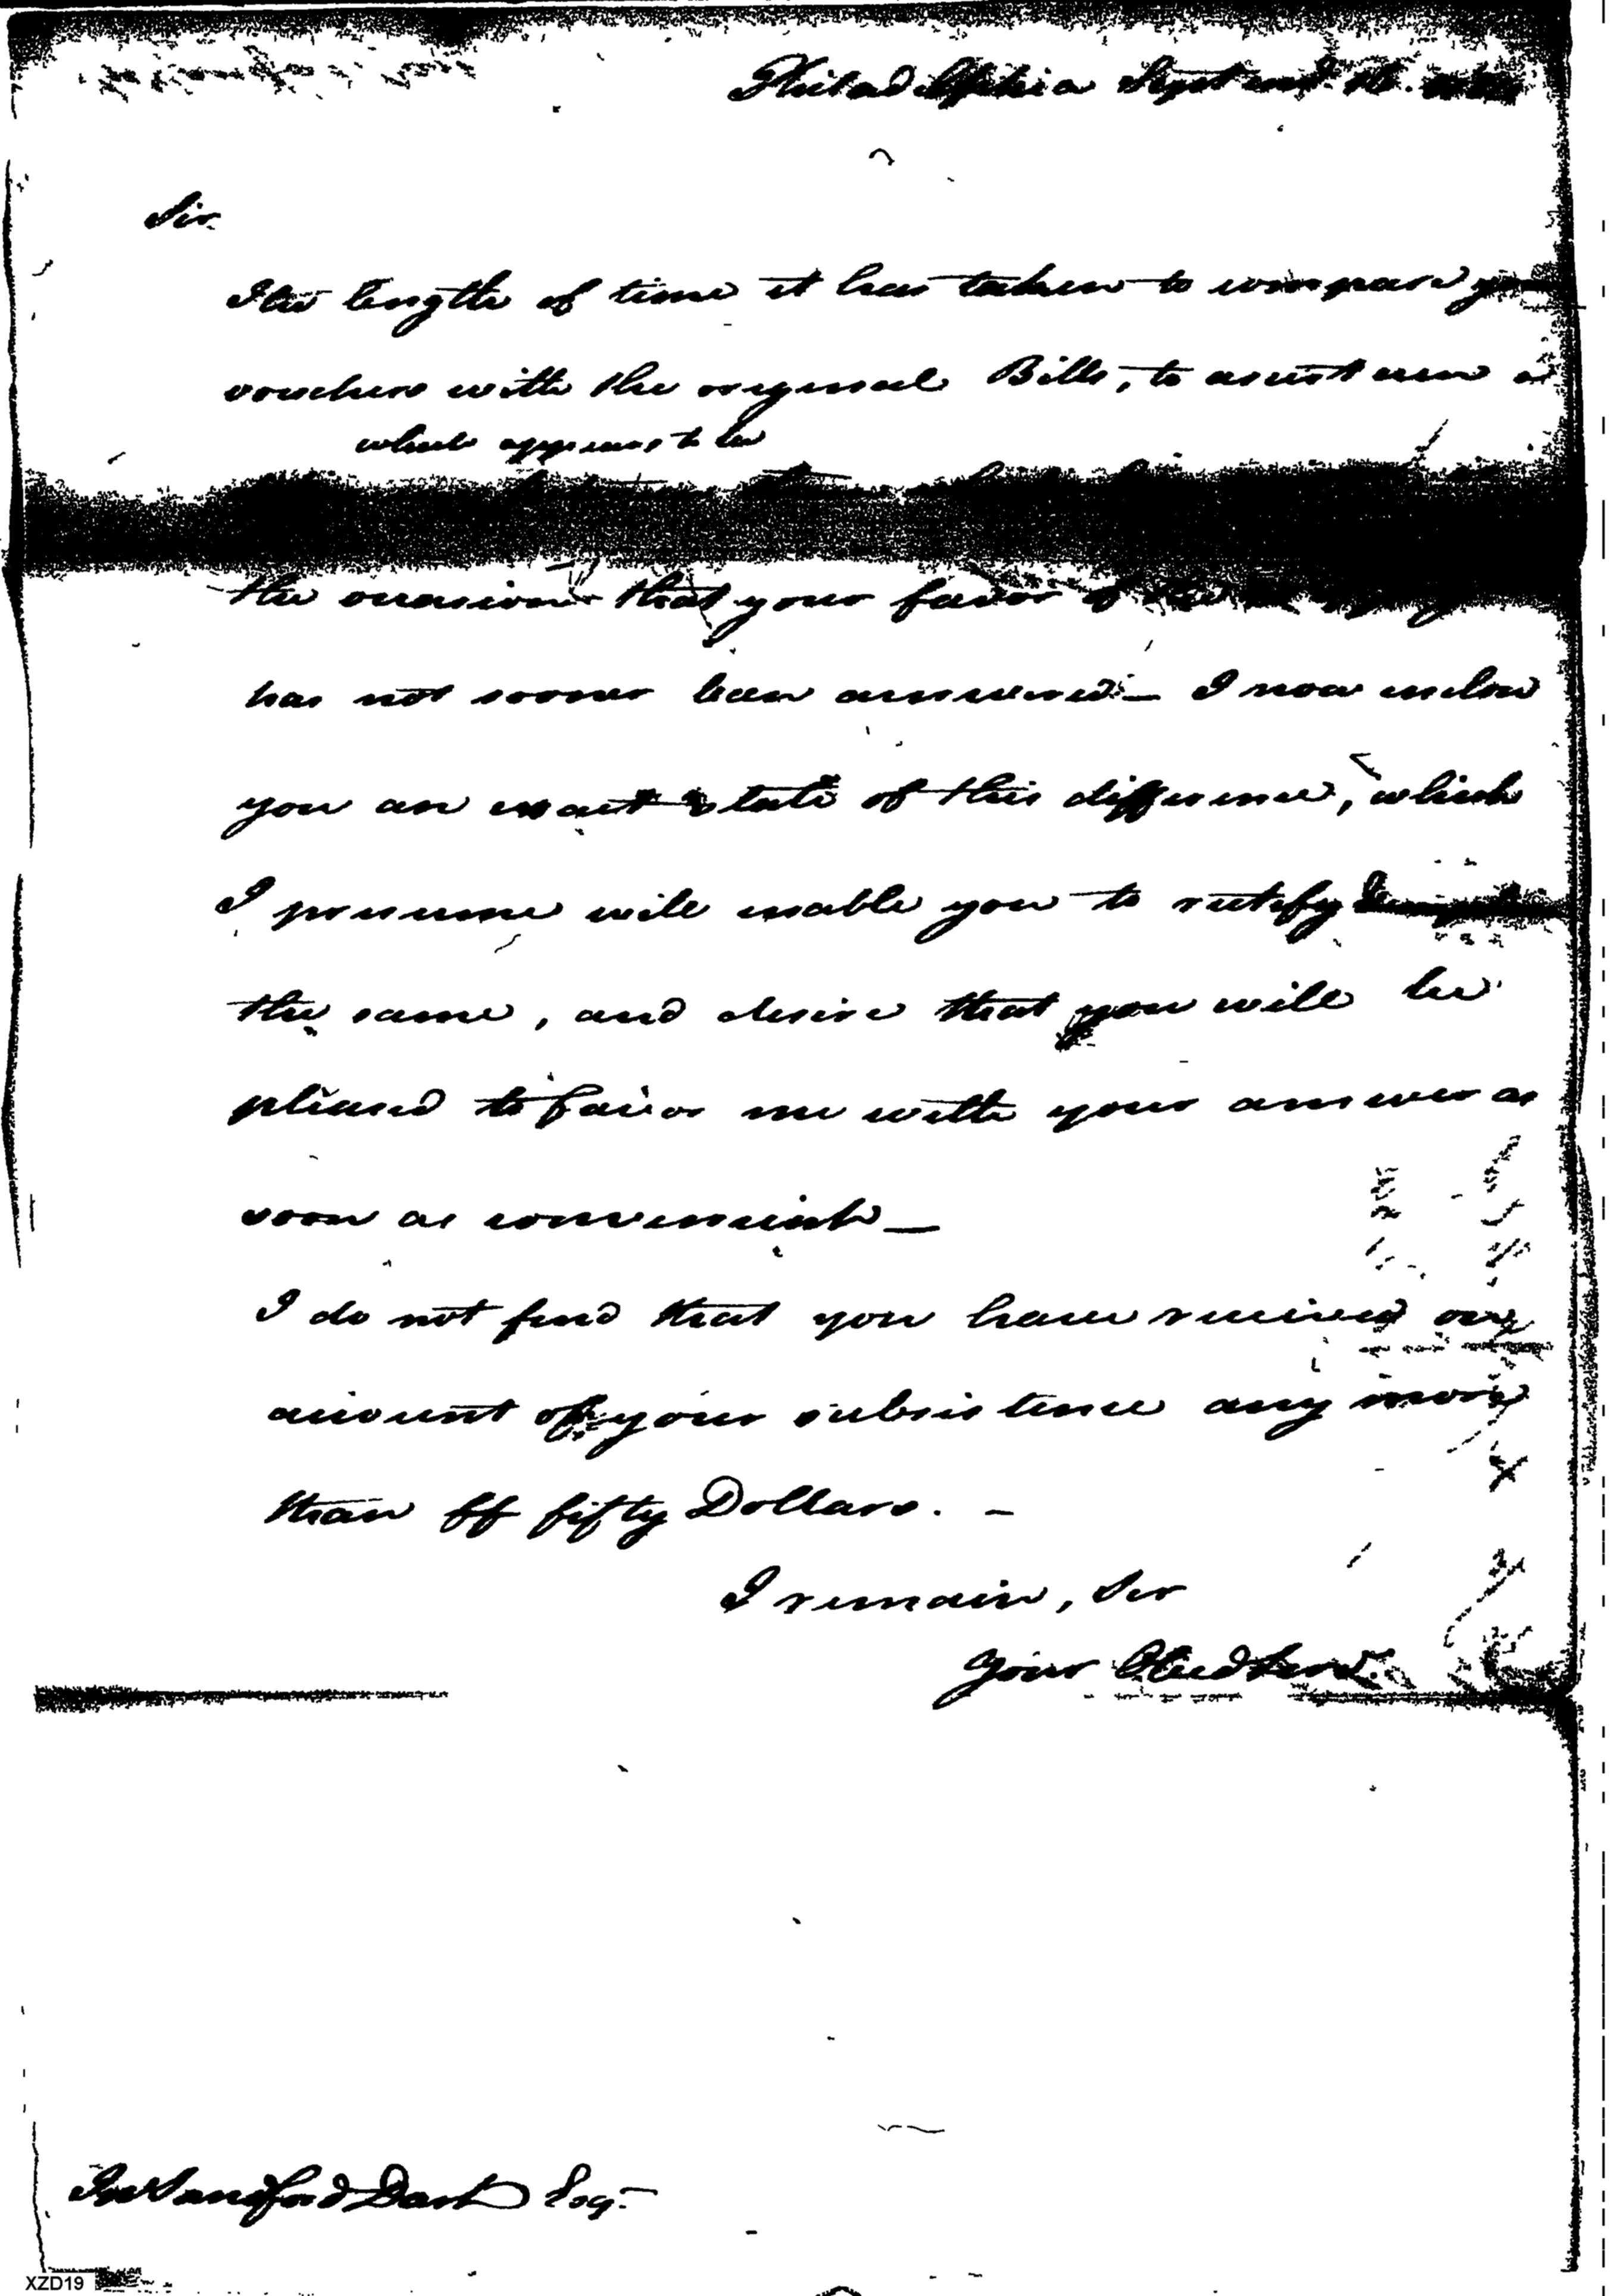 Philadelphia Septem. 16.
Sir
The length of time it has taken to compare your
vouchers with the original Bills, to ascertain
which appears to be
the occasion that your favor of the
has not sooner been answered. — I now inclose
you an exact state of this difference, which
I presume will enable you to rectify
the same, and desire that you will be
pleased to favor me with your answer as
soon as convenient —
I do not find that you have received on
account of your subsistence any more
than ff fifty Dollars. —
I remain, Sir
Your Obed Servt.
Jno Sandford Dart Esq.
XZD19